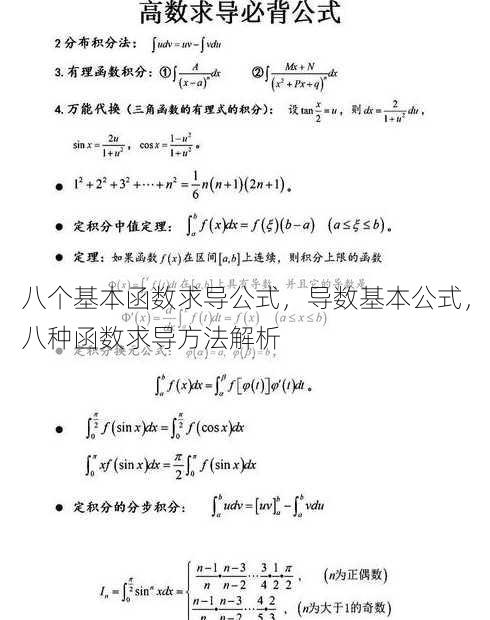 高数求导必背公式
2分布积分法: ∫udv=uv-∫vdu
3.有理函数积分: ①∫A/(x-a)ⁿ dx ②∫(Mx+N)/(x²+Px+q)ⁿ dx
4.万能代换(三角函数的有理式的积分): 设tan x/2=u, 则dx=2/(1+u²) du,
sin x=2u/(1+u²), cos x=(1-u²)/(1+u²)。
● 1²+2²+3²+⋯+n²=1/6 n(n+1)(2n+1)。
● 定积分中值定理: ∫ₐᵇf(x)dx=f(ξ)(b-a) (a≤ξ≤b)。
● 定理: 如果函数f(x)在区间[a,b]上连续, 则积分上限的函数
Φ(x)=∫ₐˣf(t)dt在[a,b]上具有导数, 并且它的导数是
八个基本函数求导公式，导数基本公式，
Φ'(x)=d/dx∫ₐˣf(t)dt=f(x) (a≤x≤b)
八种函数求导方法解析
● 定积分换元公式: φ(α)=a, φ(β)=b,
∫ₐᵇf(x)dx=∫_α^β f[φ(t)]φ'(t)dt。
● ∫₀^(π/2) f(sin x)dx=∫₀^(π/2) f(cos x)dx
∫₀^π xf(sin x)dx=π/2∫₀^π f(sin x)dx
● 定积分的分步积分: ∫ₐᵇudv=[uv]ₐᵇ-∫ₐᵇvdu
Iₙ=∫₀^(π/2) sinⁿ xdx= { (n-1)/n·(n-3)/(n-2)⋯3/4·1/2·π/2, (n为正偶数)
(n-1)/n·(n-3)/(n-2)⋯4/5·2/3, (n为大于1的奇数)